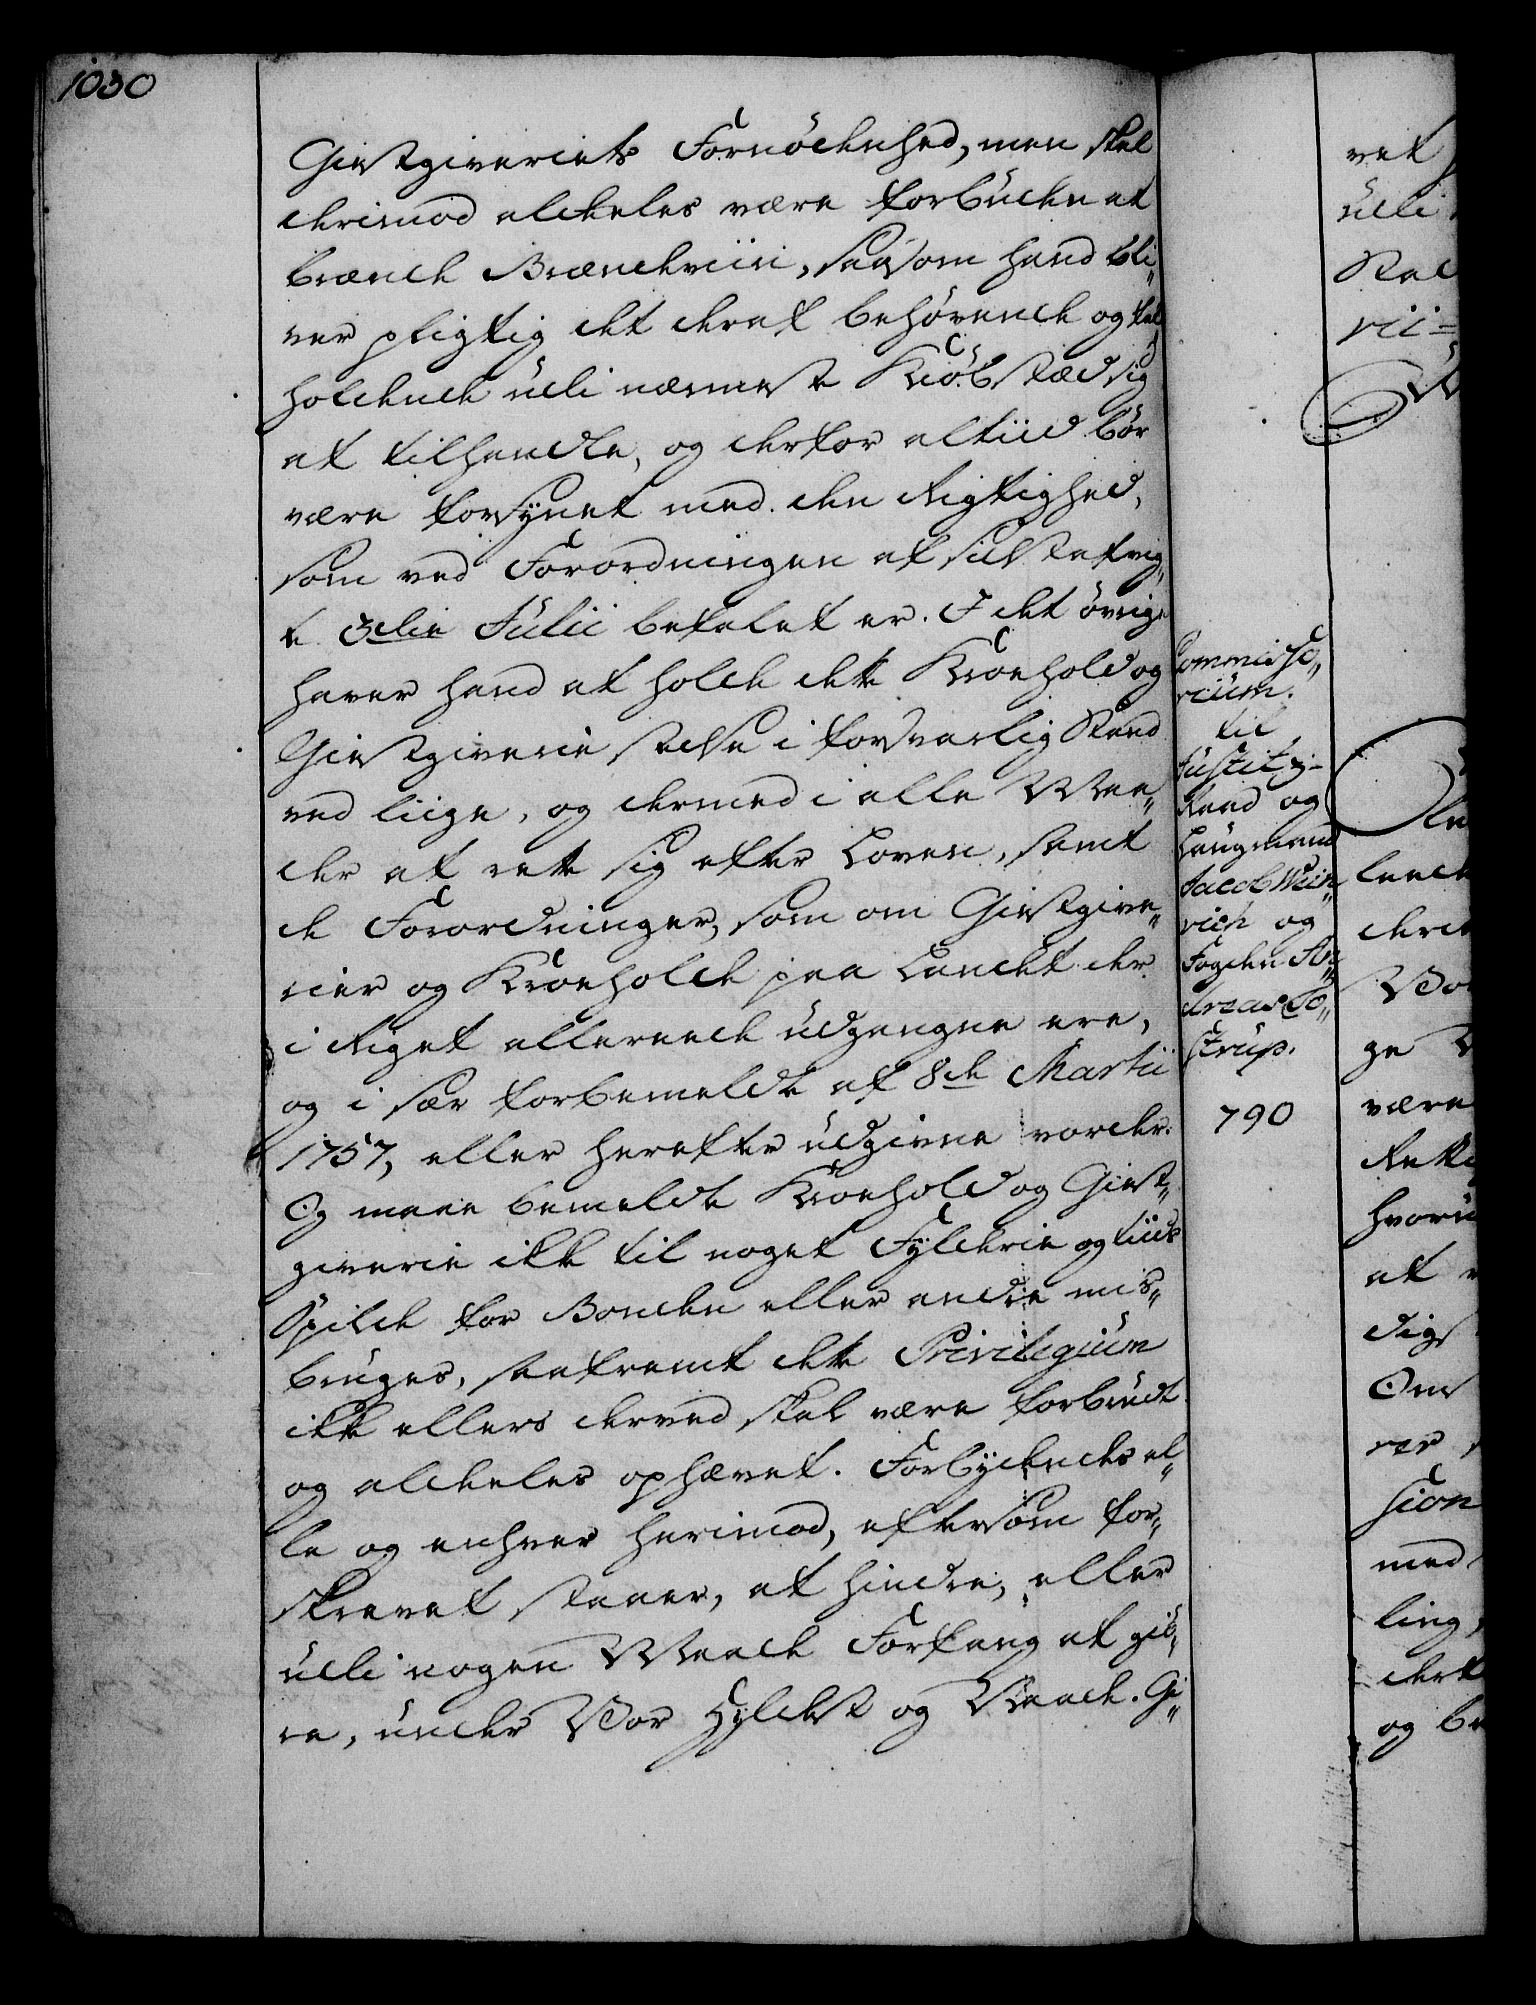 1030
Giestgiveriets Fornødenhed, men skal
derimod aldeles være forbuden at
brænde Brændeviin, saasom hand bli„
ver pligtig det deraf behøvende og fal„
holdende udi næsmeste Kiøbstæd sig
at tilhandle, og derfor altiid bør
være forsÿnet med den Rigtighed,
som ved Forordningen af sidstafvig„
te 3die Julii befalet er. I det øvrige
haver hand at holde dette Kroehold og
Giestgiverie stedse i forsvarlig Stand
ved liige, og dermed i alle Maa„
der at rette sig efter Loven, samt
de Forordninger, som om Giestgive„
rier og Kroeholde paa Landet der
i Riget allereede udgangne ere,
og i sær forbemeldte af 8de Martii
1757, eller herefter udgivne vorder.
Og maae bemeldte Kroehold og Giest„
giverie ikke til noget Fÿlderie og tiids
Spilde for Bonden eller andre mis„
bruges, saafremt dette Privilegium
ikke ellers derved skal være forbrudt
og aldeles ophævet. Forbÿdendes al„
le og enhver herimod, eftersom for„
skrevet staaer, at hindre, eller
udi nogen Maade Forfang at giø„
re, under Vor Hÿldest og Naade. Gi„
Commisso„
rium.
til
Justitz-
Raad og
Laugmand
Jacob Wein„
rich og
Fogden An„
dreas To„
strup.
790
vet
udi
Stad
vii=
være
Rette
hvoru
at
dig
Om
rer
sion
med
ling,
og be